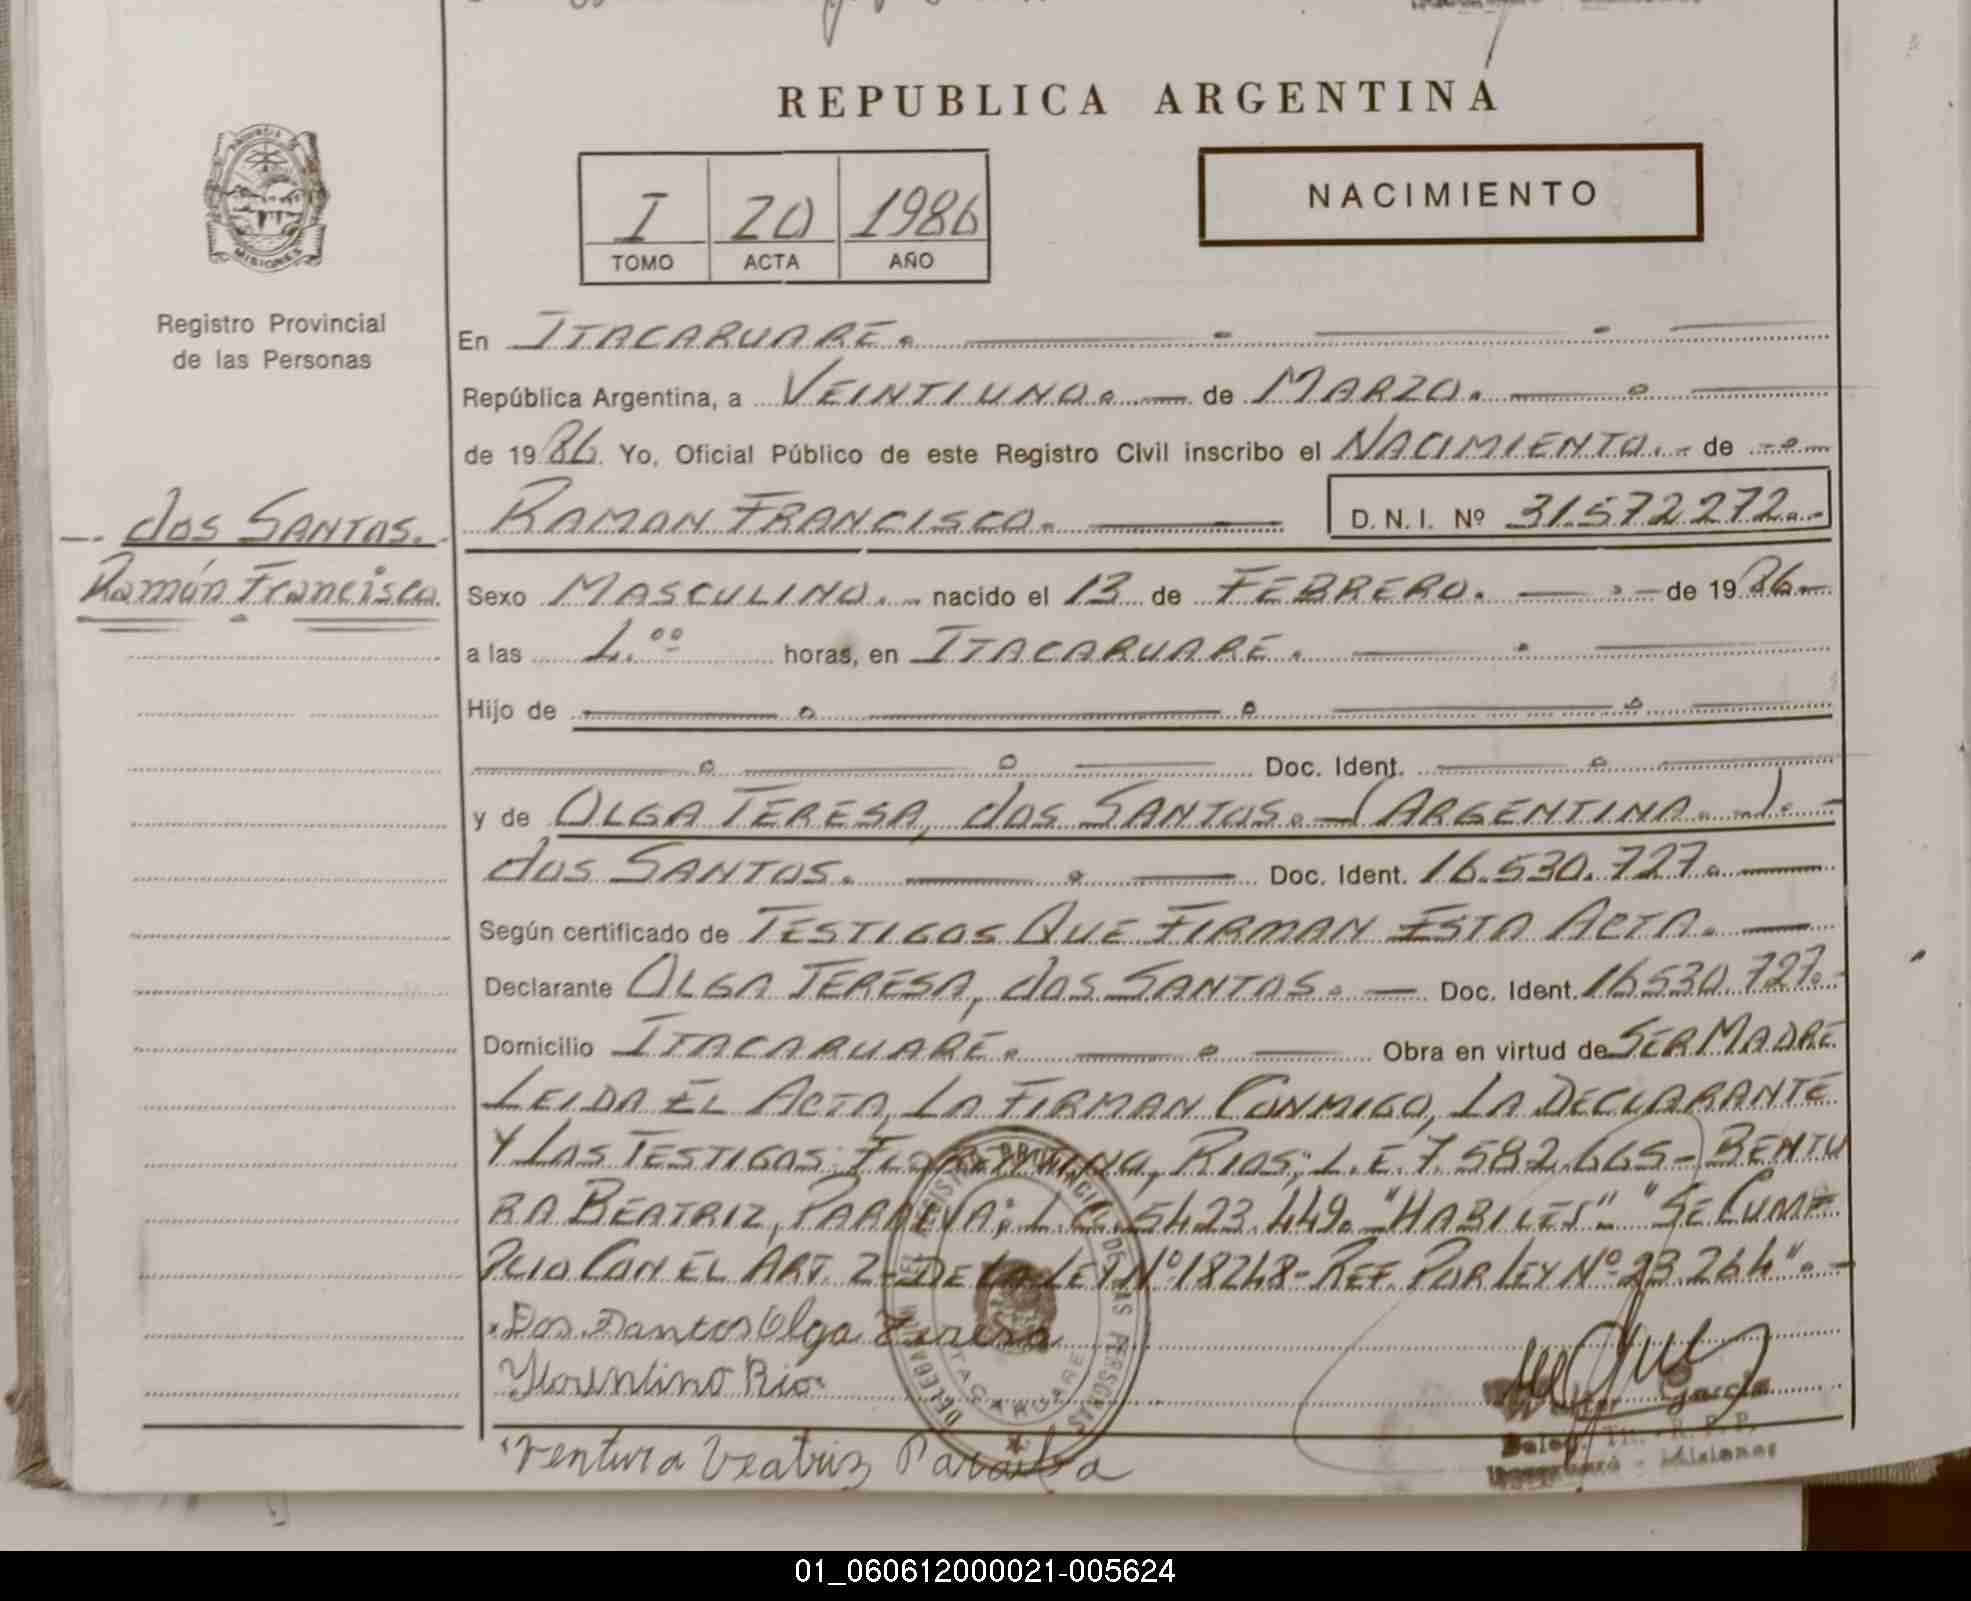 REPUBLICA ARGENTINA
I 20 1986
TOMO ACTA AÑO
NACIMIENTO
MISIONES
Registro Provincial
de las Personas
dos SANTOS.
Ramón Francisco
En ITACARUARE.
República Argentina, a VEINTIUNO. de MARZO.
de 1986. Yo, Oficial Público de este Registro Civil inscribo el NACIMIENTO. de
RAMON FRANCISCO. D.N.I. Nº 31.572.272.-
Sexo MASCULINO. nacido el 13 de FEBRERO. de 1986.
a las 4.00 horas, en ITACARUARE.
Hijo de
Doc. Ident.
y de OLGA TERESA, dos SANTOS. (ARGENTINA.)
dos SANTOS. Doc. Ident. 16.530.727.
Según certificado de TESTIGOS QUE FIRMAN ESTA ACTA.
Declarante OLGA TERESA, dos SANTOS. Doc. Ident. 16530.727.
Domicilio ITACARUARE. Obra en virtud de SER MADRE
LEIDA EL ACTA, LA FIRMAN CONMIGO, LA DECLARANTE
Y LOS TESTIGOS: RIOS; L.E. 7.582.665- BENTU
RA BEATRIZ, L.C. 5423.449. "HABILES" "SE CUM
PLIO CON EL ART. 2- DE LA LEY Nº 18248- REF. POR LEY Nº 23.264".
Dos Santos Olga Teresa
Florentino Rio
Ventura Veatriz Paraiba
Garcia
R.P.P.
Misiones
ITACARUARE
01_060612000021-005624